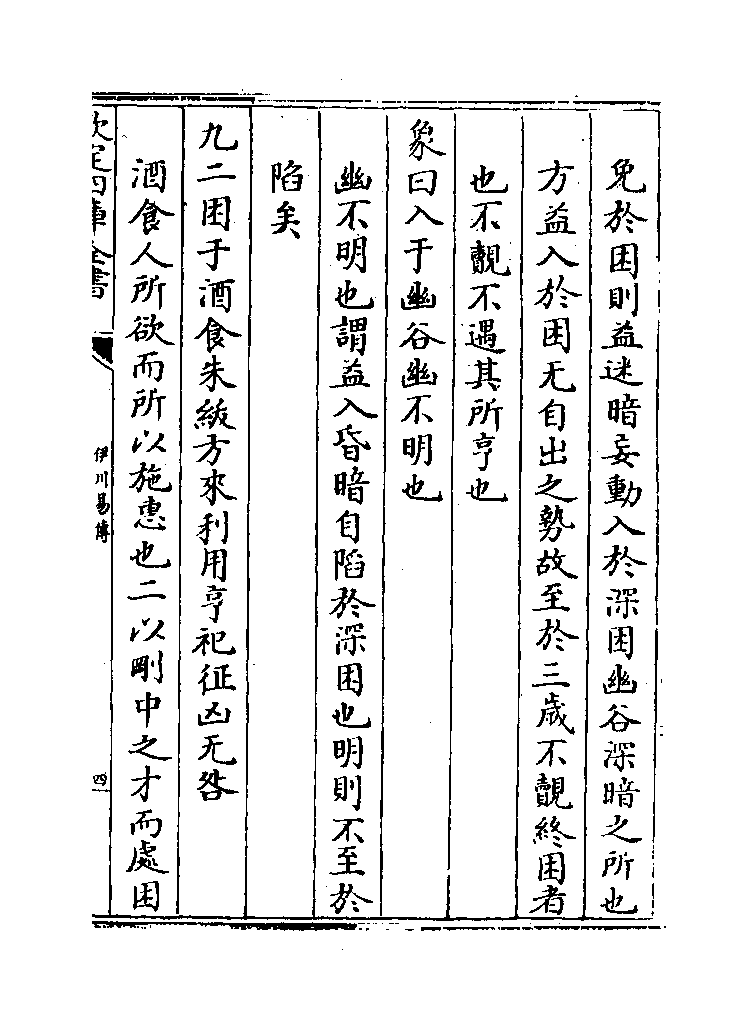 免於困則益迷暗妄動入於深困幽谷深暗之所也
方益入於困无自出之勢故至於三歲不覿終困者
也不覿不遇其所亨也
象曰入于幽谷幽不明也
幽不明也謂益入昏暗自陷於深困也明則不至於
陷矣
九二困于酒食朱紱方來利用亨祀征凶无咎
酒食人所欲而所以施惠也二以剛中之才而處困
欽定四庫全書
伊川易傳
四